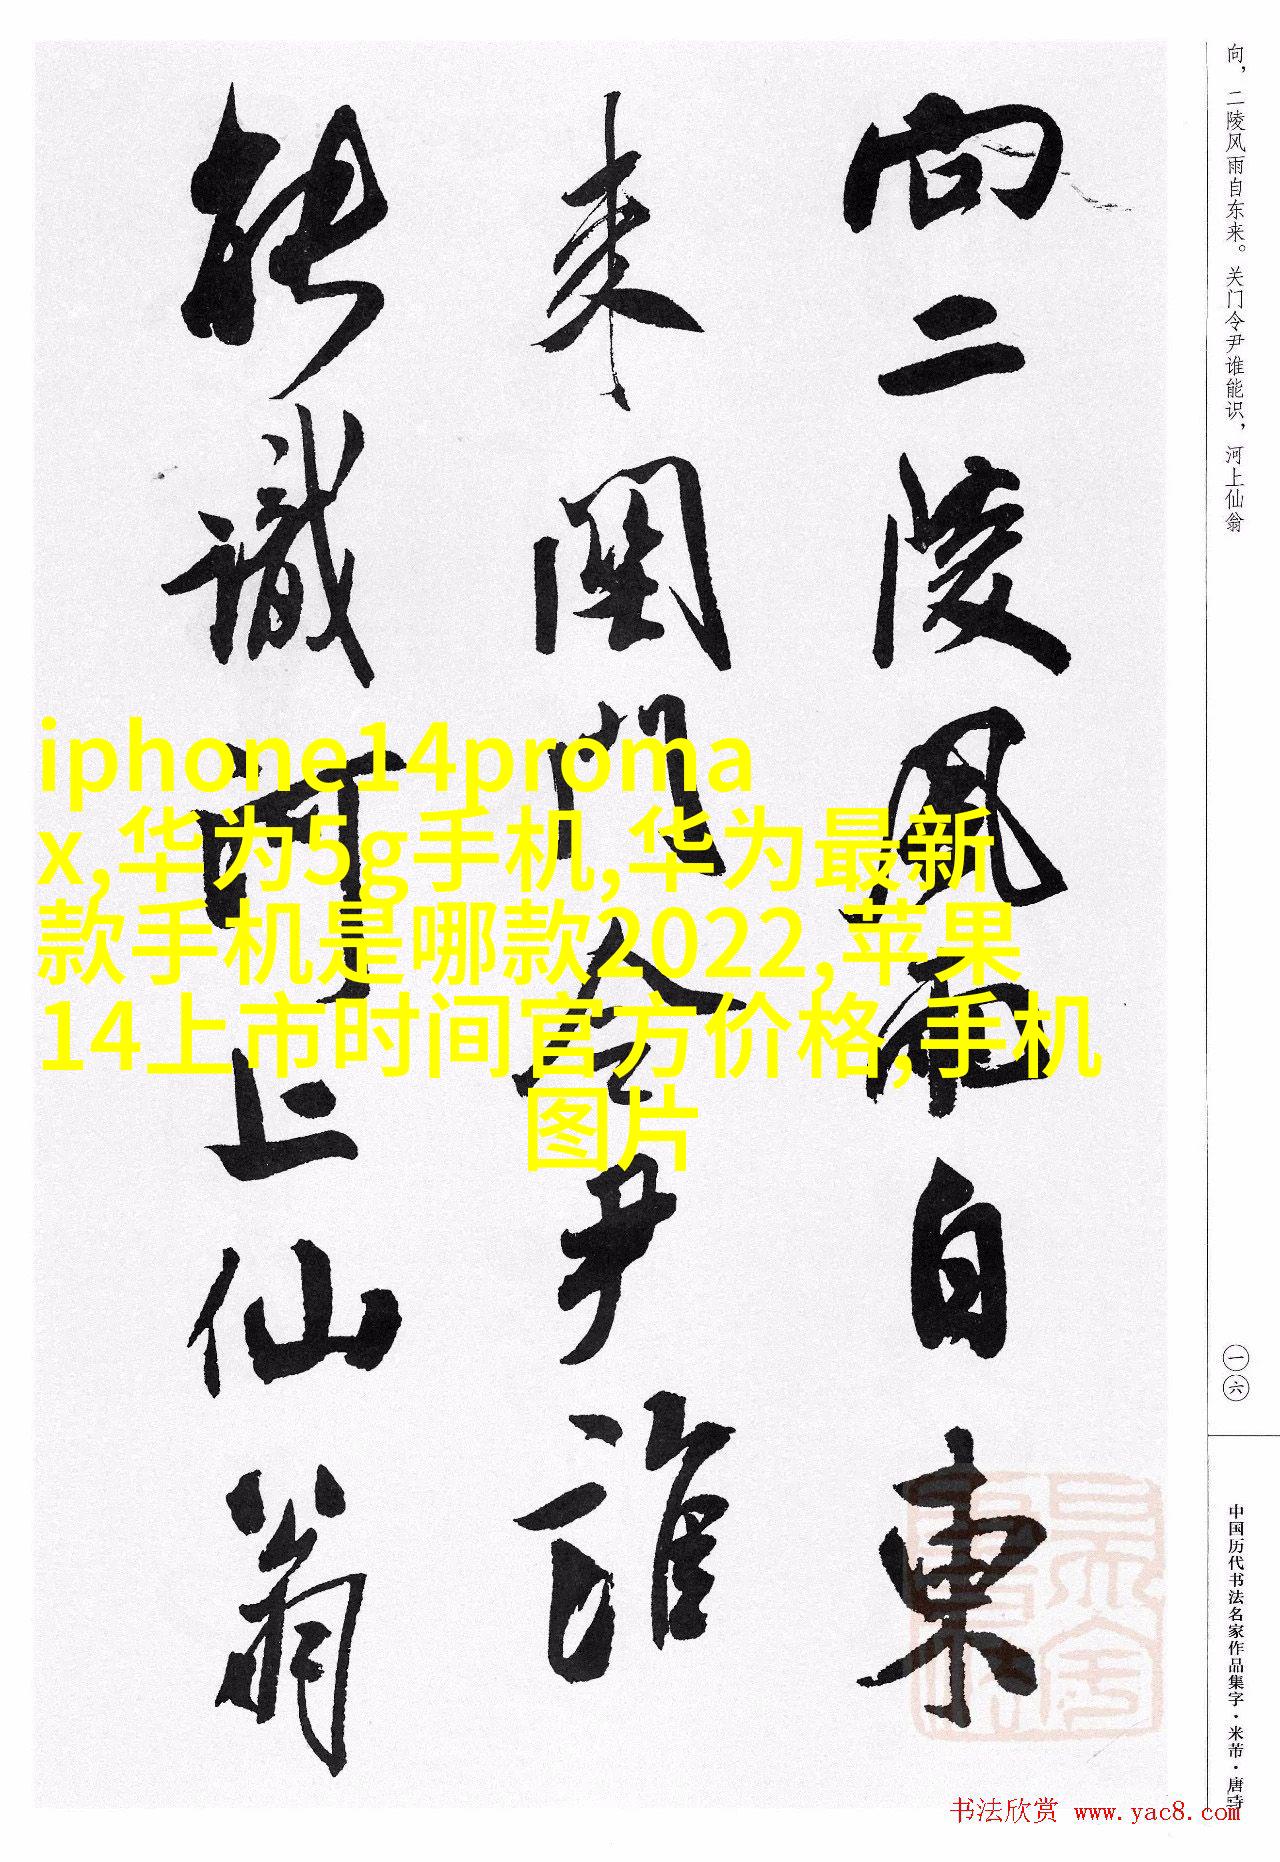 向二陵风雨自東
来関門令尹誰
能識河上仙翁
向，二陵风雨自东来。关门令尹谁能识，河上仙翁
一六
中国历代书法名家作品集字·米芾·唐诗
iphone14proma
x,华为5g手机,华为最新
款手机是哪款2022,苹果
14上市时间官方价格,手机
图片
书法欣赏 www.yac8.com